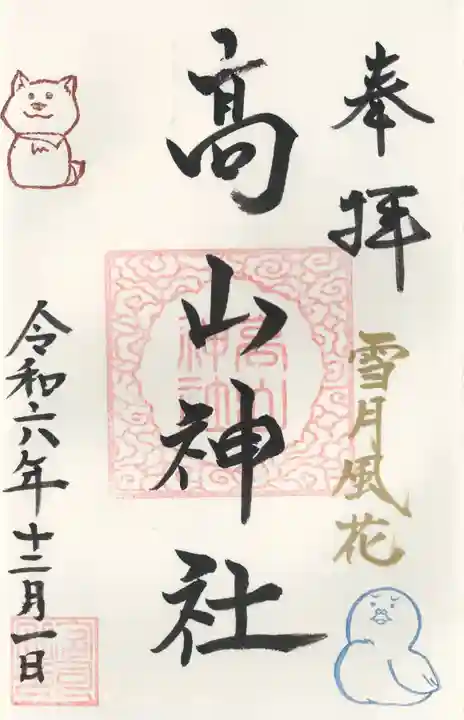 奉拝
雪月風花
高山神社
高山
神社
令和六年十二月一日